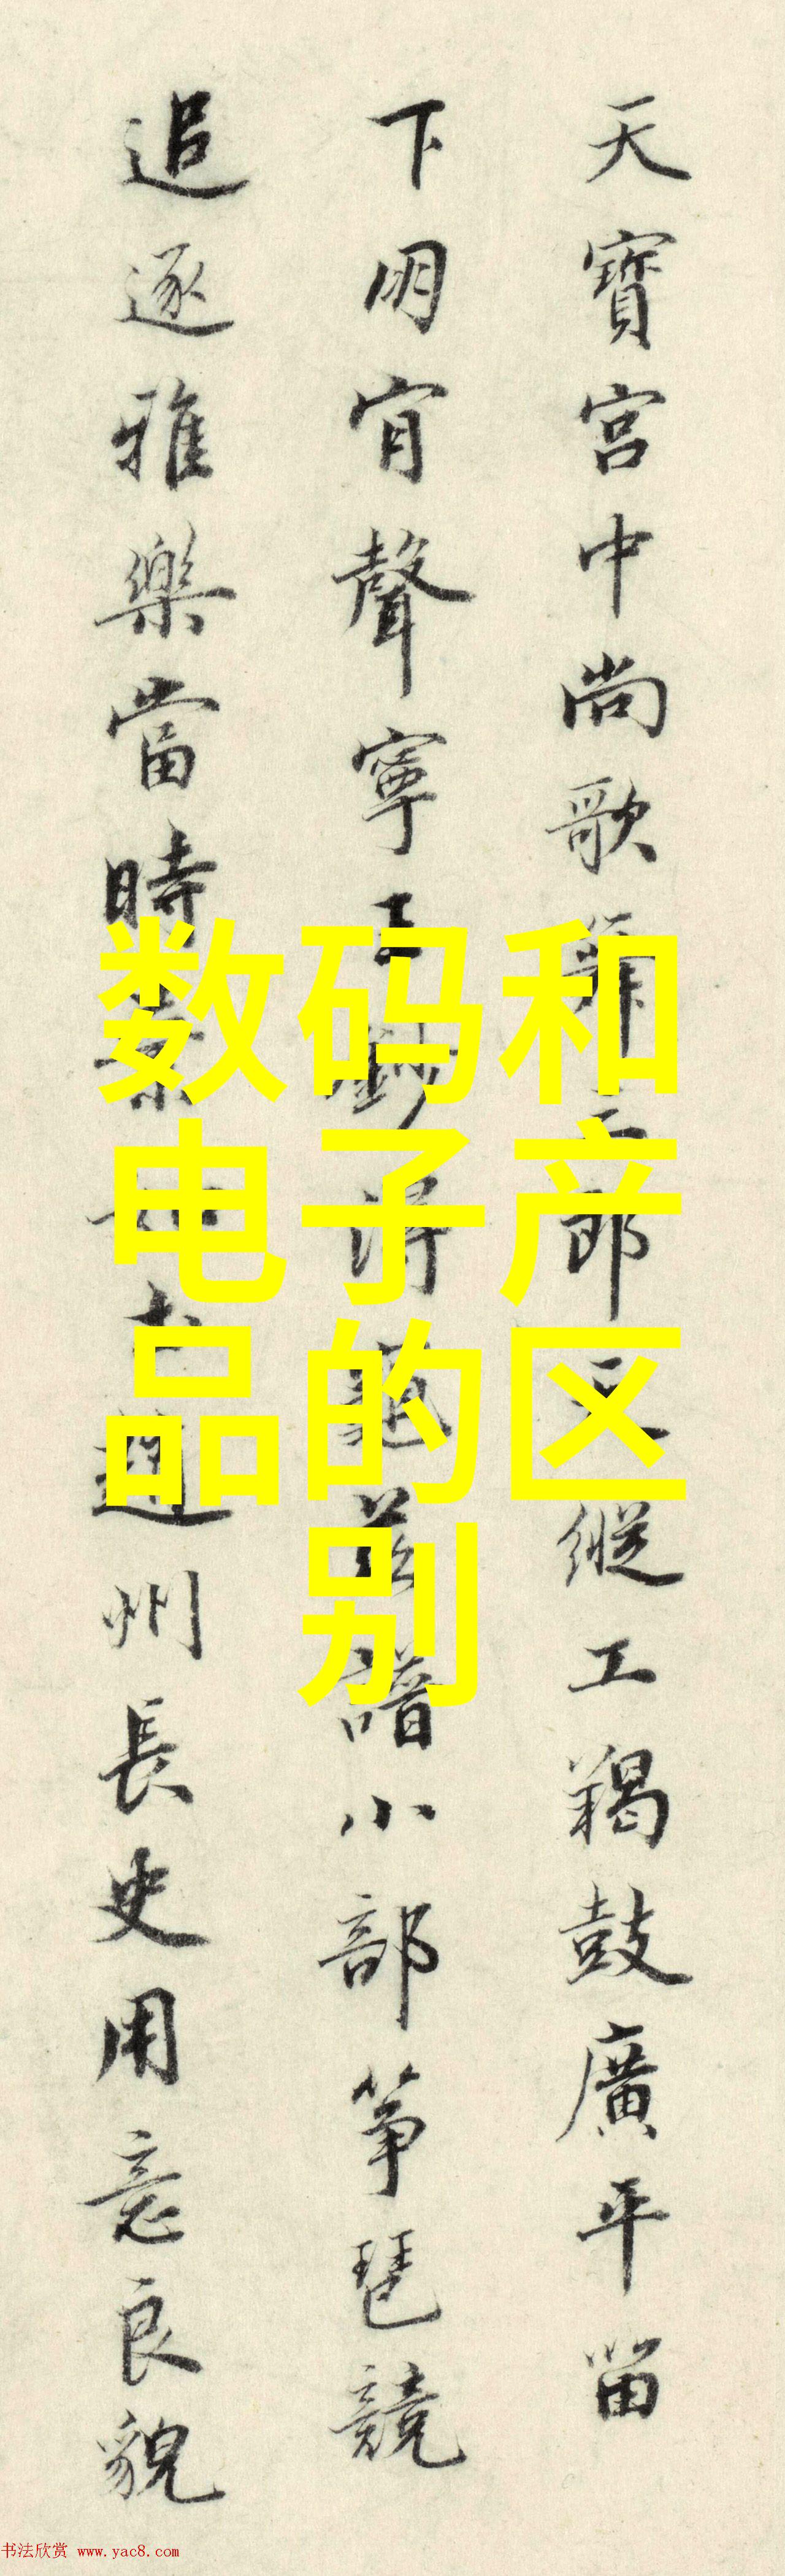 天寶宮中尚歌舞三郎又縱工羯鼓廣平留
下明肎聲寧王鈔得龜茲譜小部箏琶競
追逐雅樂當時
州長史用意良貌
数码和
电子产
品的区
别
书法欣赏 www.yac8.com